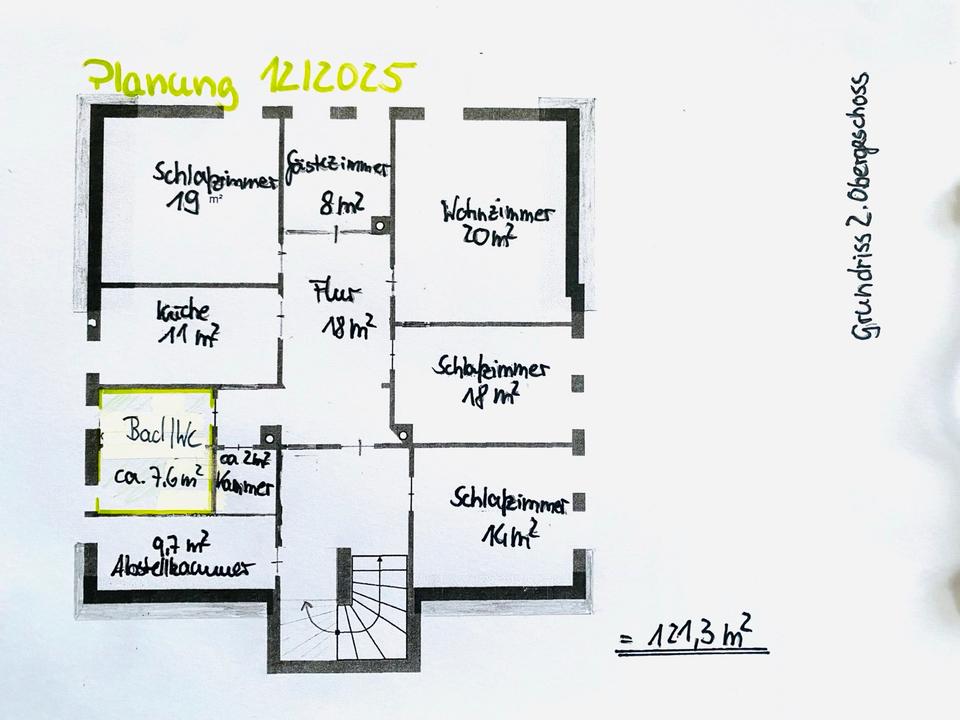 Planung 12/2025
Schlafzimmer
19 m²
Gästezimmer
8 m²
Wohnzimmer
20 m²
Küche
11 m²
Flur
18 m²
Schlafzimmer
18 m²
Bad/WC
ca. 7,6 m²
ca 2m²
Kammer
Schlafzimmer
14 m²
9,7 m²
Abstellkammer
= 121,3 m²
Grundriss 2. Obergeschoss